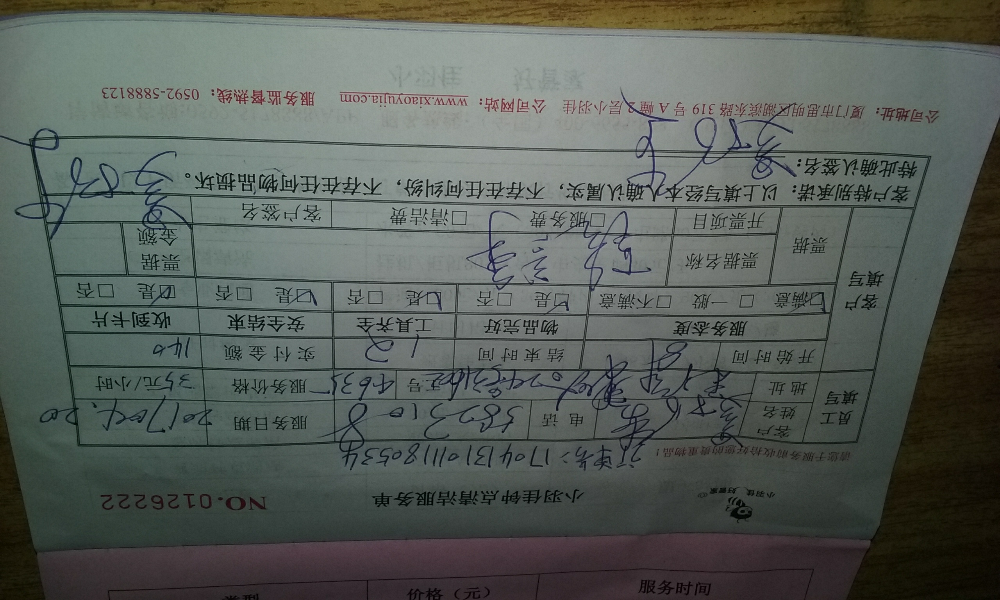 小羽佳 刘管家
小羽佳钟点清洁服务单
NO.0126222
请您于服务前收拾好您的贵重物品!
订单号:170413101180534
员工填写
客户姓名
电话
服务日期
2017.04.20
地址
服务价格
35元/小时
开始时间
8
结束时间
12
实付金额
140
客户填写
服务态度
物品完好
工具齐全
安全结束
收到卡片
☑满意 □一般 □不满意
☑是 □否
☑是 □否
☑是 □否
☑是 □否
票据
票据名称
票据金额
开票项目
□服务费
□清洁费
客户签名
客户特别承诺:以上填写经本人确认,实属实,不存在任何纠纷,不存在任何物品损坏。
特此确认签名:
公司地址:厦门市思明区湖滨东路 319 号 A 幢 2 层小羽佳 公司网站:www.xiaoyujia.com 服务监督热线:0592-5888123
类型
价格(元)
服务时间